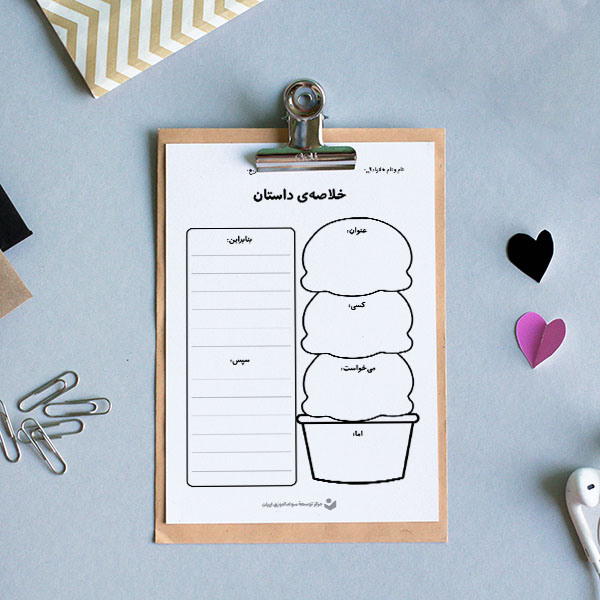 نام و نام خانوادگی:
خلاصه‌ی داستان
عنوان:
کسی:
می‌خواست:
اما:
بنابراین:
سپس:
مرکز توسعهٔ سوادآموزی ایران